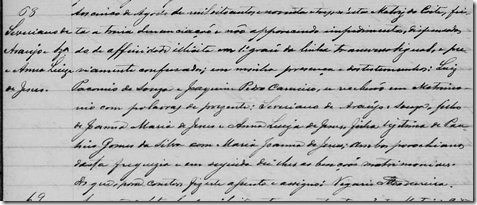 68
Aos cinco de Agosto de mil oitocentos e noventa e tres n'esta Matriz do Corte, fei
Severiano de ta a trina denunciação e não apparecendo impedimento, dispensados
Araujo do de affinidade illicita em 1º grau da linha transversal igual, e pre
e Anna Luiza viamente confessados; em minha presença e das testemunhas: Luiz
de Jesus. de Souza Joaquim Pedro Carneiro, e recebeu em Matrimo
nio com palavras de presente: Severiano de Araujo filho
de Joanna Maria de Jesus e Anna Luiza de Jesus, filha legitima de
Gomes da Silva com Maria Joanna de Jesus; Ambos parochianos
desta freguezia e em seguida dei-lhes as bençãos matrimoniaes.
Do que, para constar, fiz este assento e assigno. Vigario
69